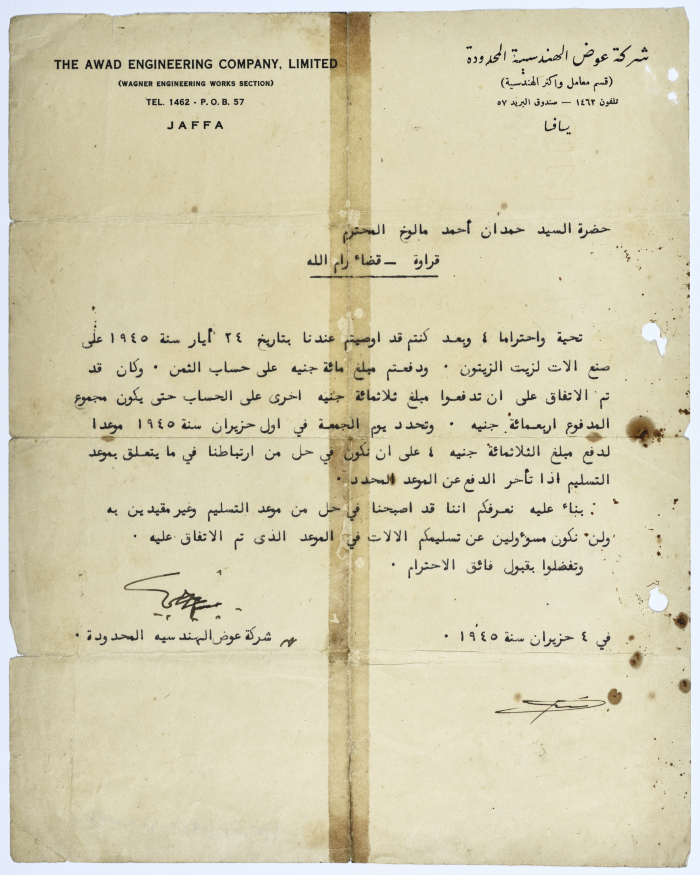 THE AWAD ENGINEERING COMPANY, LIMITED
(WAGNER ENGINEERING WORKS SECTION)
TEL. 1462 - P. O. B. 57
JAFFA
شركة عوض الهندسية المحدودة
(قسم معامل واكنر الهندسية)
تلفون ١٤٦٢ — صندوق البريد ٥٧
يافا
حضرة السيد حمدان أحمد مالوخ المحترم
قراوة - قضاء رام الله
تحية واحتراما ٤ وبعد كنتم قد اوصيتم عندنا بتاريخ ٢٤ أيار سنة ١٩٤٥ على
صنع الات لزيت الزيتون ٠ ودفعتم مبلغ مائة جنيه على حساب الثمن ٠ وكان قد
تم الاتفاق على ان تدفعوا مبلغ ثلاثمائة جنيه اخرى على الحساب حتى يكون مجموع
المدفوع اربعمائة جنيه ٠ وتحدد يوم الجمعة في اول حزيران سنة ١٩٤٥ موعدا
لدفع مبلغ الثلاثمائة جنيه ٤ على ان نكون في حل من ارتباطنا في ما يتعلق بموعد
التسليم اذا تأخر الدفع عن الموعد المحدد ٠
بناء عليه نعرفكم اننا قد اصبحنا في حل من موعد التسليم وغير مقيدين به
ولن نكون مسؤولين عن تسليمكم الالات في الموعد الذى تم الاتفاق عليه ٠
وتفضلوا بقبول فائق الاحترام ٠
في ٤ حزيران سنة ١٩٤٥ ٠
شركة عوض الهندسيه المحدودة ٠